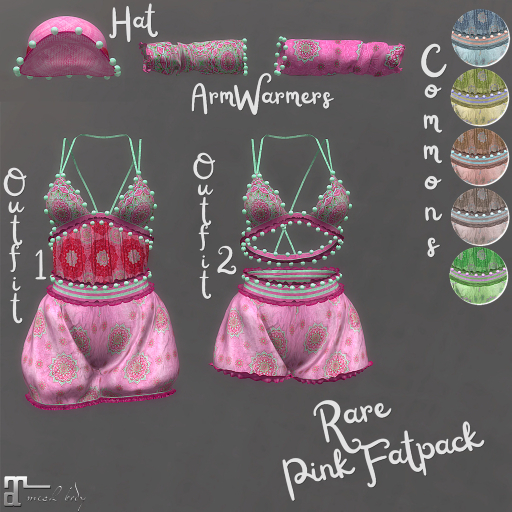 Hat
ArmWarmers
Commons
Outfit 1
Outfit 2
Rare
Pink Fatpack
mesh body